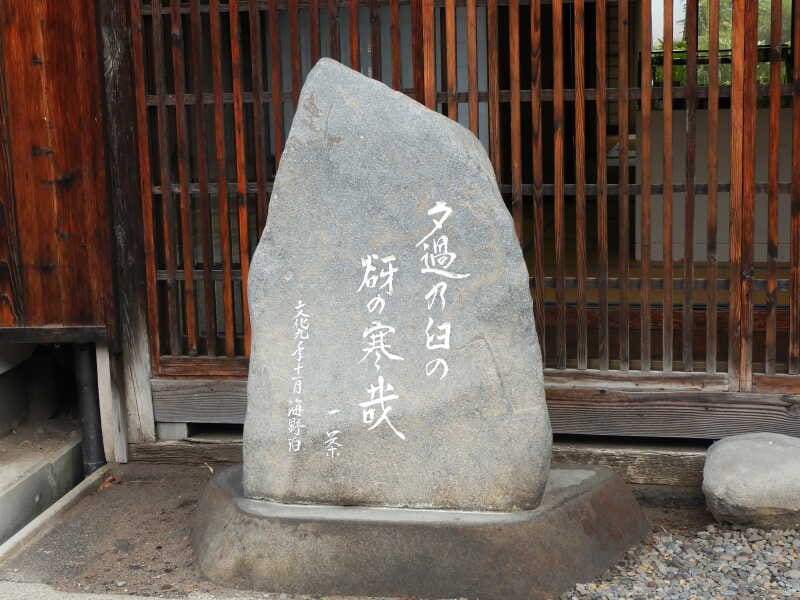 夕過の臼の
谺の寒哉
一茶
文化九年十一月 海野泊